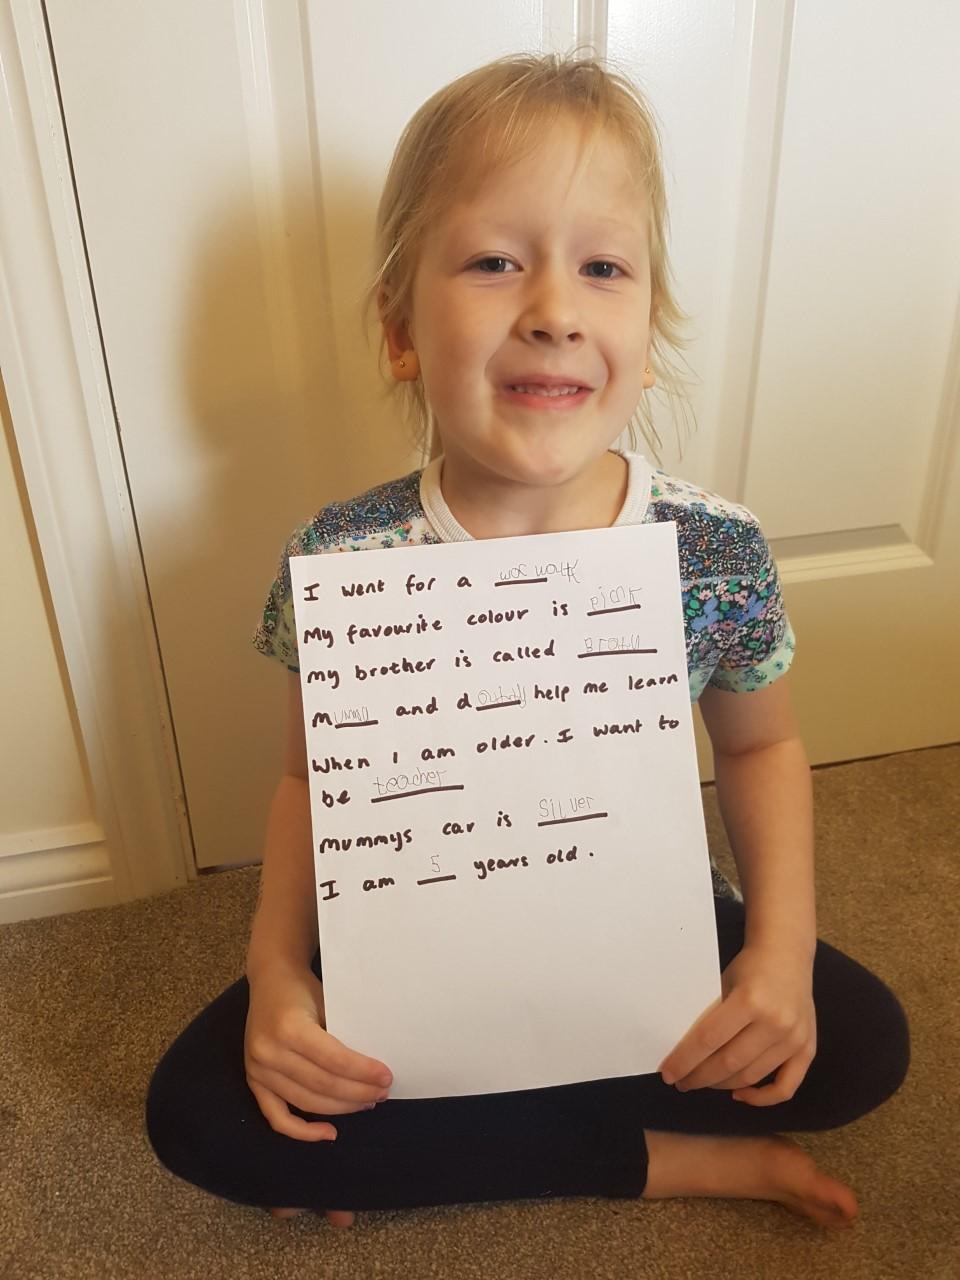 I went for a walk
My favourite colour is pink
my brother is called
mummy and d help me learn
When I am older. I want to
be teacher
mummys car is silver
I am 5 years old.